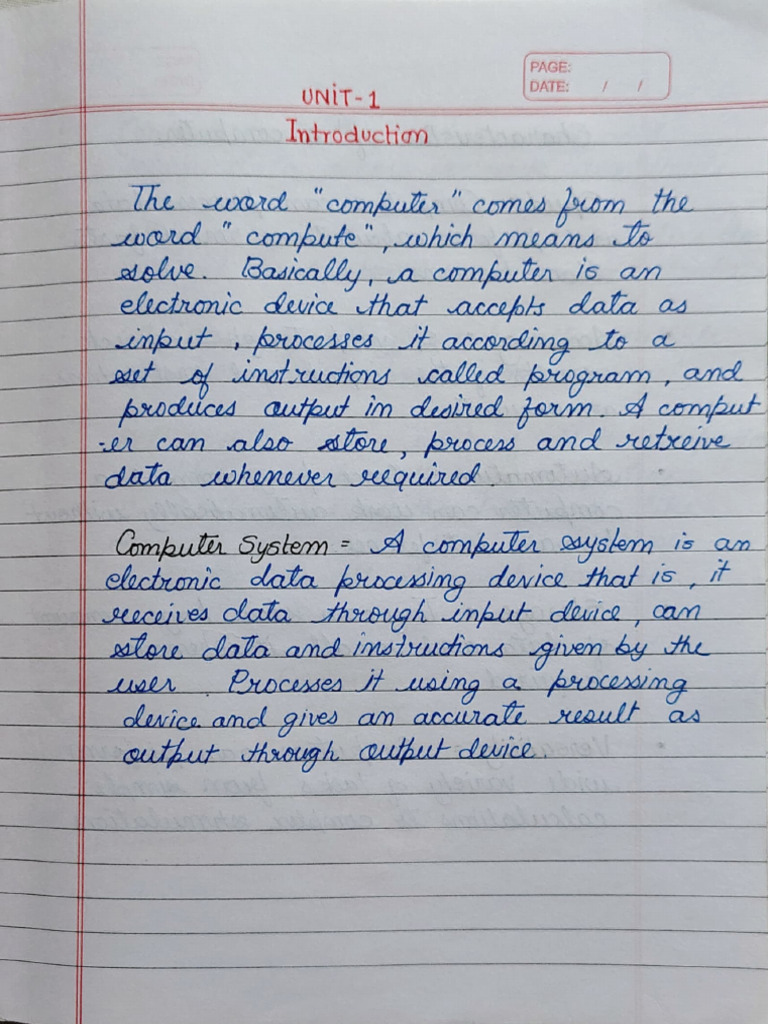 PAGE:
DATE: / /
UNIT-1
Introduction
The word "computer" comes from the
word "compute", which means to
solve. Basically, a computer is an
electronic device that accepts data as
input, processes it according to a
set of instructions called program, and
produces output in desired form. A comput
-er can also store, process and retreive
data whenever required.
Computer System = A computer system is an
electronic data processing device that is, it
receives data through input device, can
store data and instructions given by the
user. Processes it using a processing
device and gives an accurate result as
output through output device.